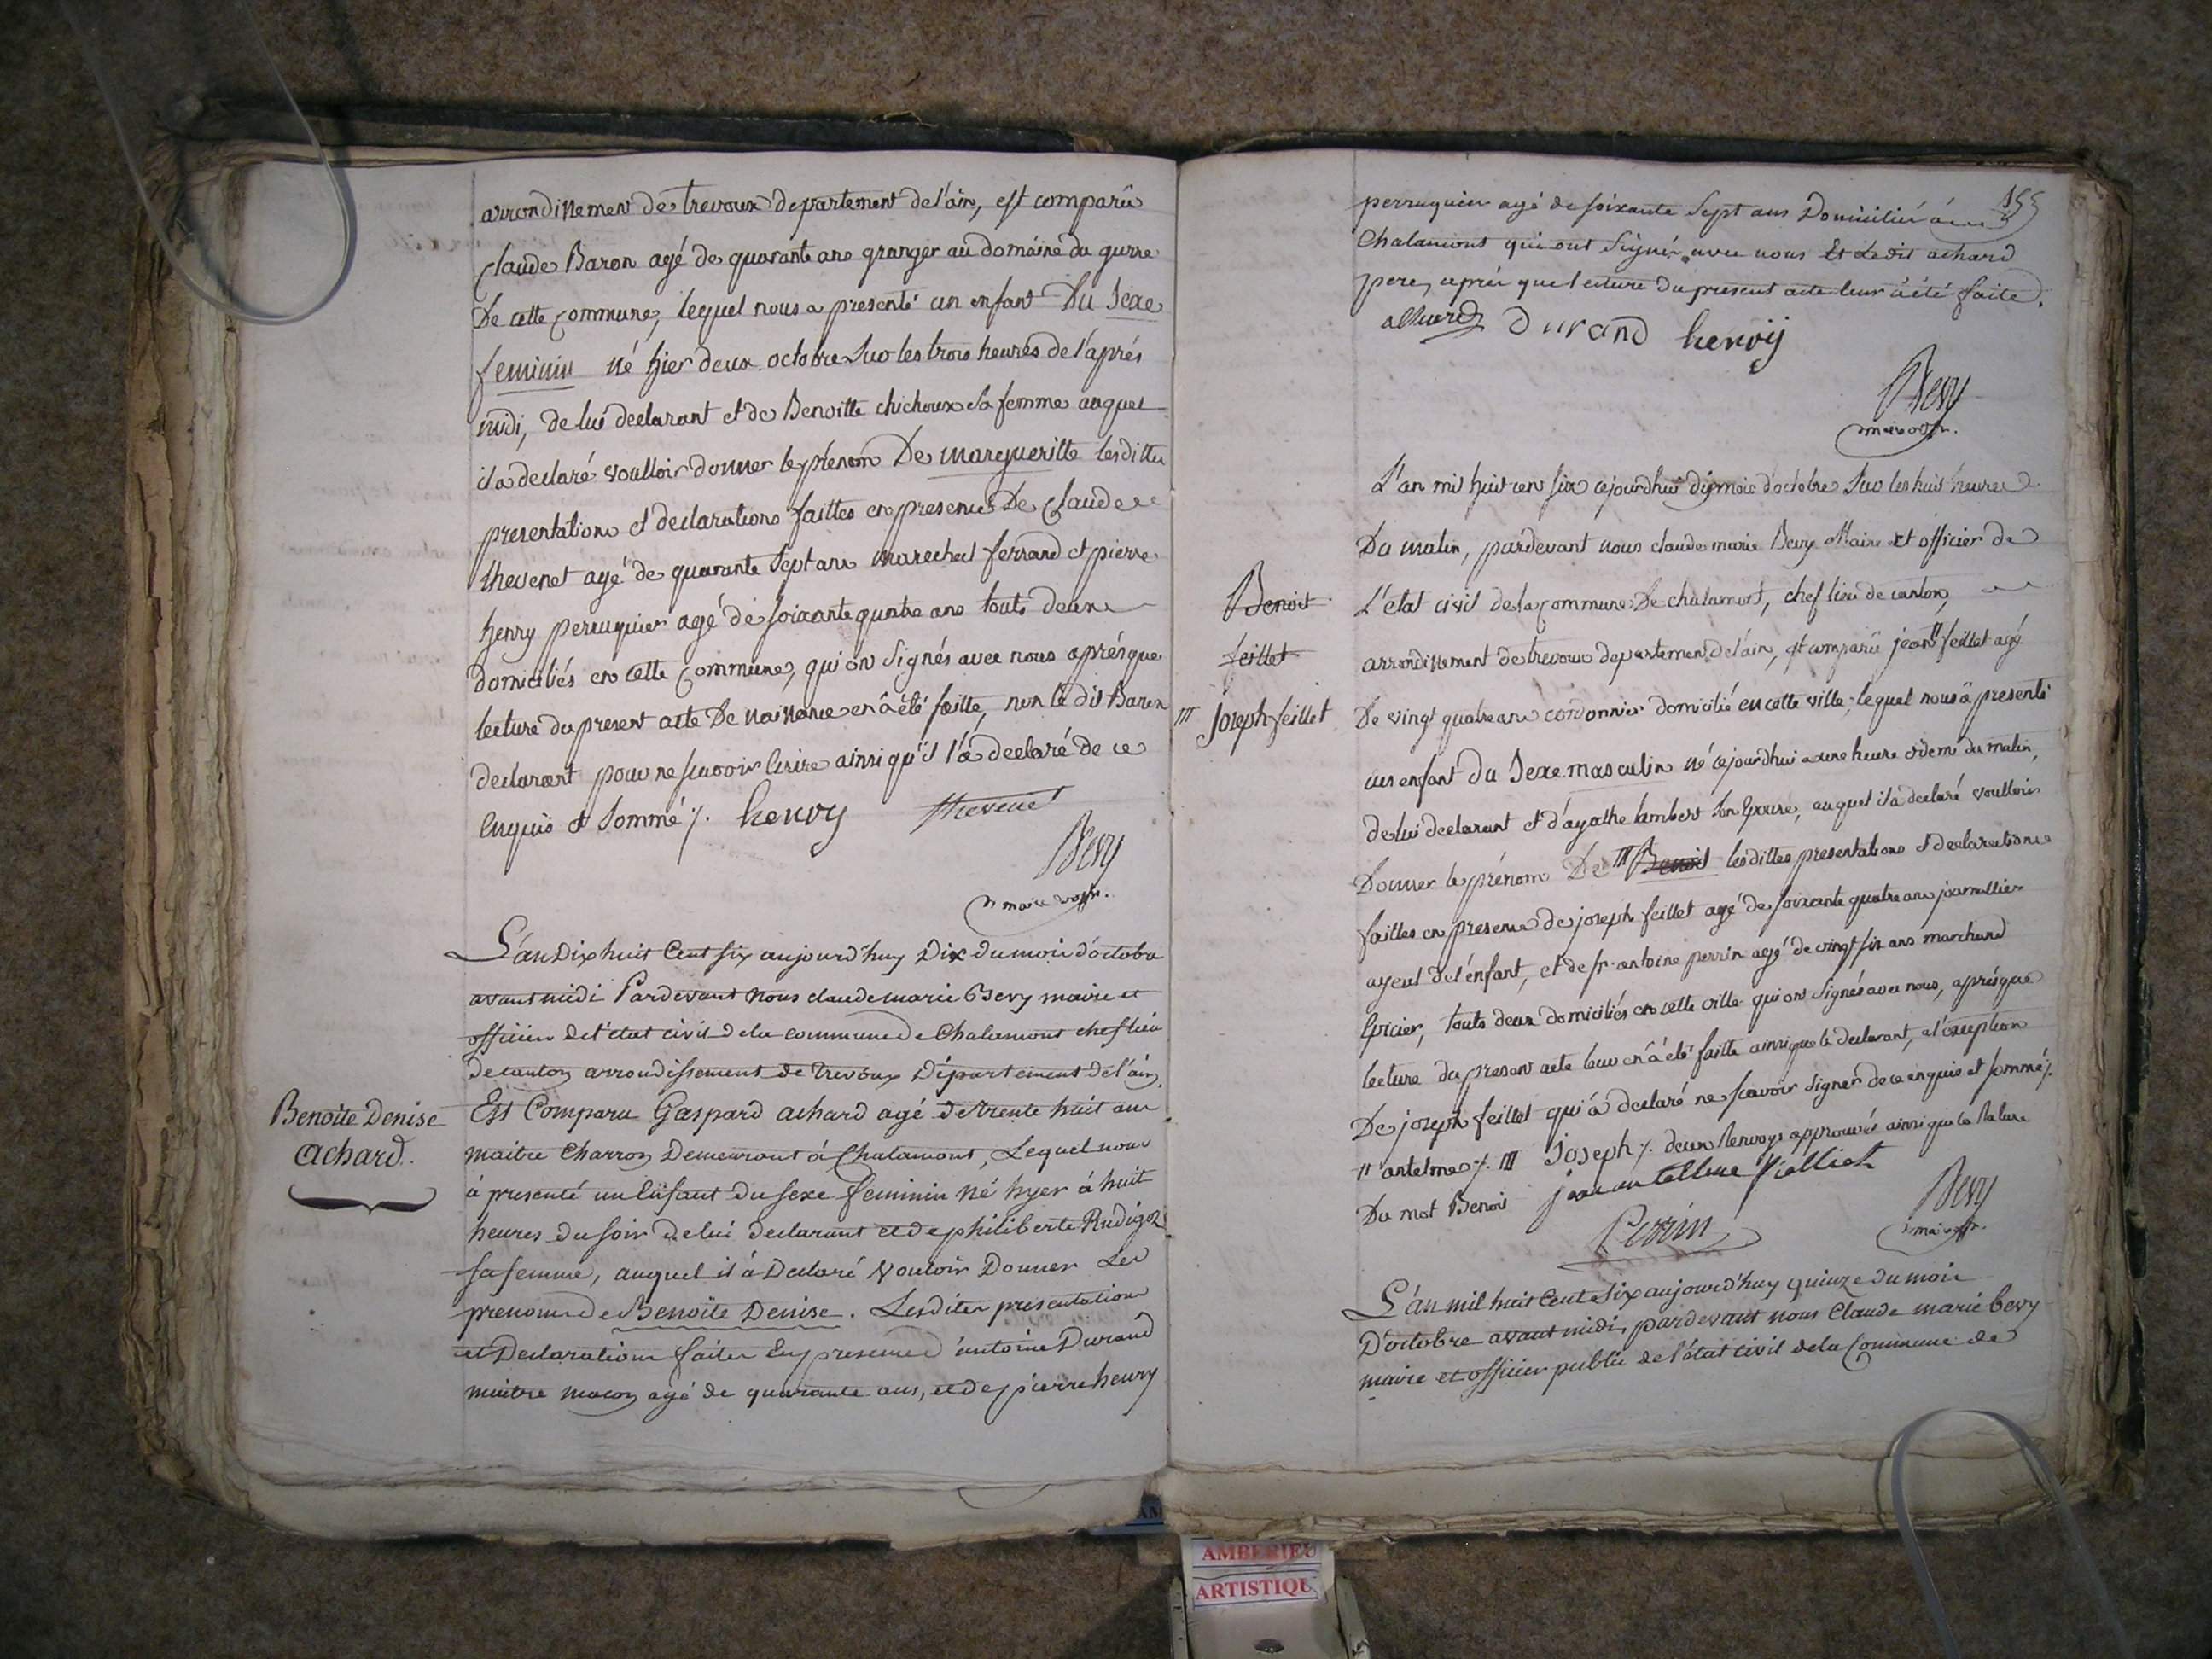 arrondissement de trevoux departement de l'ain, est comparû
Claude Baron agé de quarante ans granger au domaine du gurre
De cette commune, lequel nous a presenté un enfant Du Sexe
feminin né hier deux octobre Sur les trois heures de l'aprés
midi, de lui declarant et de Benoitte chichoux sa femme auquel
il a declaré voulloir donner le prenom De margueritte lesdittes
presentations et declarations faittes en presence De Claude
thevenet agé de quarante Sept ans marechal ferrand et pierre
henry perruquier agé de soixante quatre ans touts deux
domiciliés en cette commune, qui on signés avec nous aprés que
lecture du present acte De naissance en â été faitte, non le dit Baron
declarant pour ne scavoir Ecrire ainsi qu'il l'a declaré de ce
Enquis et Sommé ⁒. henry thevenet
Bevy
maire
L'an Dix huit Cent six aujourd'huy Dix du mois d'octobre
avant midi Pardevant nous claude marie Bevy maire et
officier de l'état civil de la commune de Chalamont chef lieu
de canton arrondissement de trevoux Département de l'ain.
Benoite Denise
achard.
Est Comparu Gaspard achard agé de trente huit ans
maitre Charron Demeurant à Chalamont, Lequel nous
à presenté un Enfant du sexe feminin né hyer à huit
heures du soir de lui declarant et de philiberte Rudigoz
sa femme, auquel il à Declaré Vouloir Donner Les
prenoms de Benoite Denise. Lesdites presentation
et Declaration faites En presence d'antoine Durand
maitre macon agé de quarante ans, et de pierre henry
155
perruquier agé de soixante Sept ans Domicilié à
Chalamont qui ont Signés avec nous Et Ledit achard
pere, aprés que lecture du present acte leur à été faite.
achard Durand henry
Bevy
maire
L'an mil huit cent six cejourdhui dix mois d'octobre Sur les huit heures
Du matin, pardevant nous claude marie Bevy Maire et officier de
L'état civil de la commune De chalamont, chef lieu de canton,
Benoit
feillet
III joseph feillet
arrondissement de trevoux departement de l'ain, est comparû jean II feillet agé
De vingt quatre ans cordonnier domicilié en cette ville, lequel nous â presenté
un enfant du Sexe masculin né cejourdhui a une heure et demi du matin,
de lui declarant et d'agathe lambert Son Epouse, auquel il a declaré voulloir
Donner le prénom De III Benoit lesdittes presentations et declarations
faittes en presence de joseph feillet agé de soixante quatre ans journallier
ayeul de l'enfant, et de fr. antoine perrin agé de vingt six ans marchand
Epicier, touts deux domiciliés en cette ville qui ont signés avec nous, aprés que
lecture du present acte leur en â été faitte ainsi que le declarant, a l'exception
De joseph feillet qui â declaré ne scavoir signer de ce enquis et sommé ⁒.
II antelme ⁒. III Joseph ⁒. deux Renvoys approuvés ainsi que la Rature
Du mot Benoit jean antellme fielliet
Perrin
Bevy
maire
L'an mil huit Cent Six aujourd'huy quinze du mois
D'octobre avant midi, pardevant nous Claude marie bevy
maire et officier public de l'état civil de la Commune de
AM
AMBERIEU
ARTISTIQU